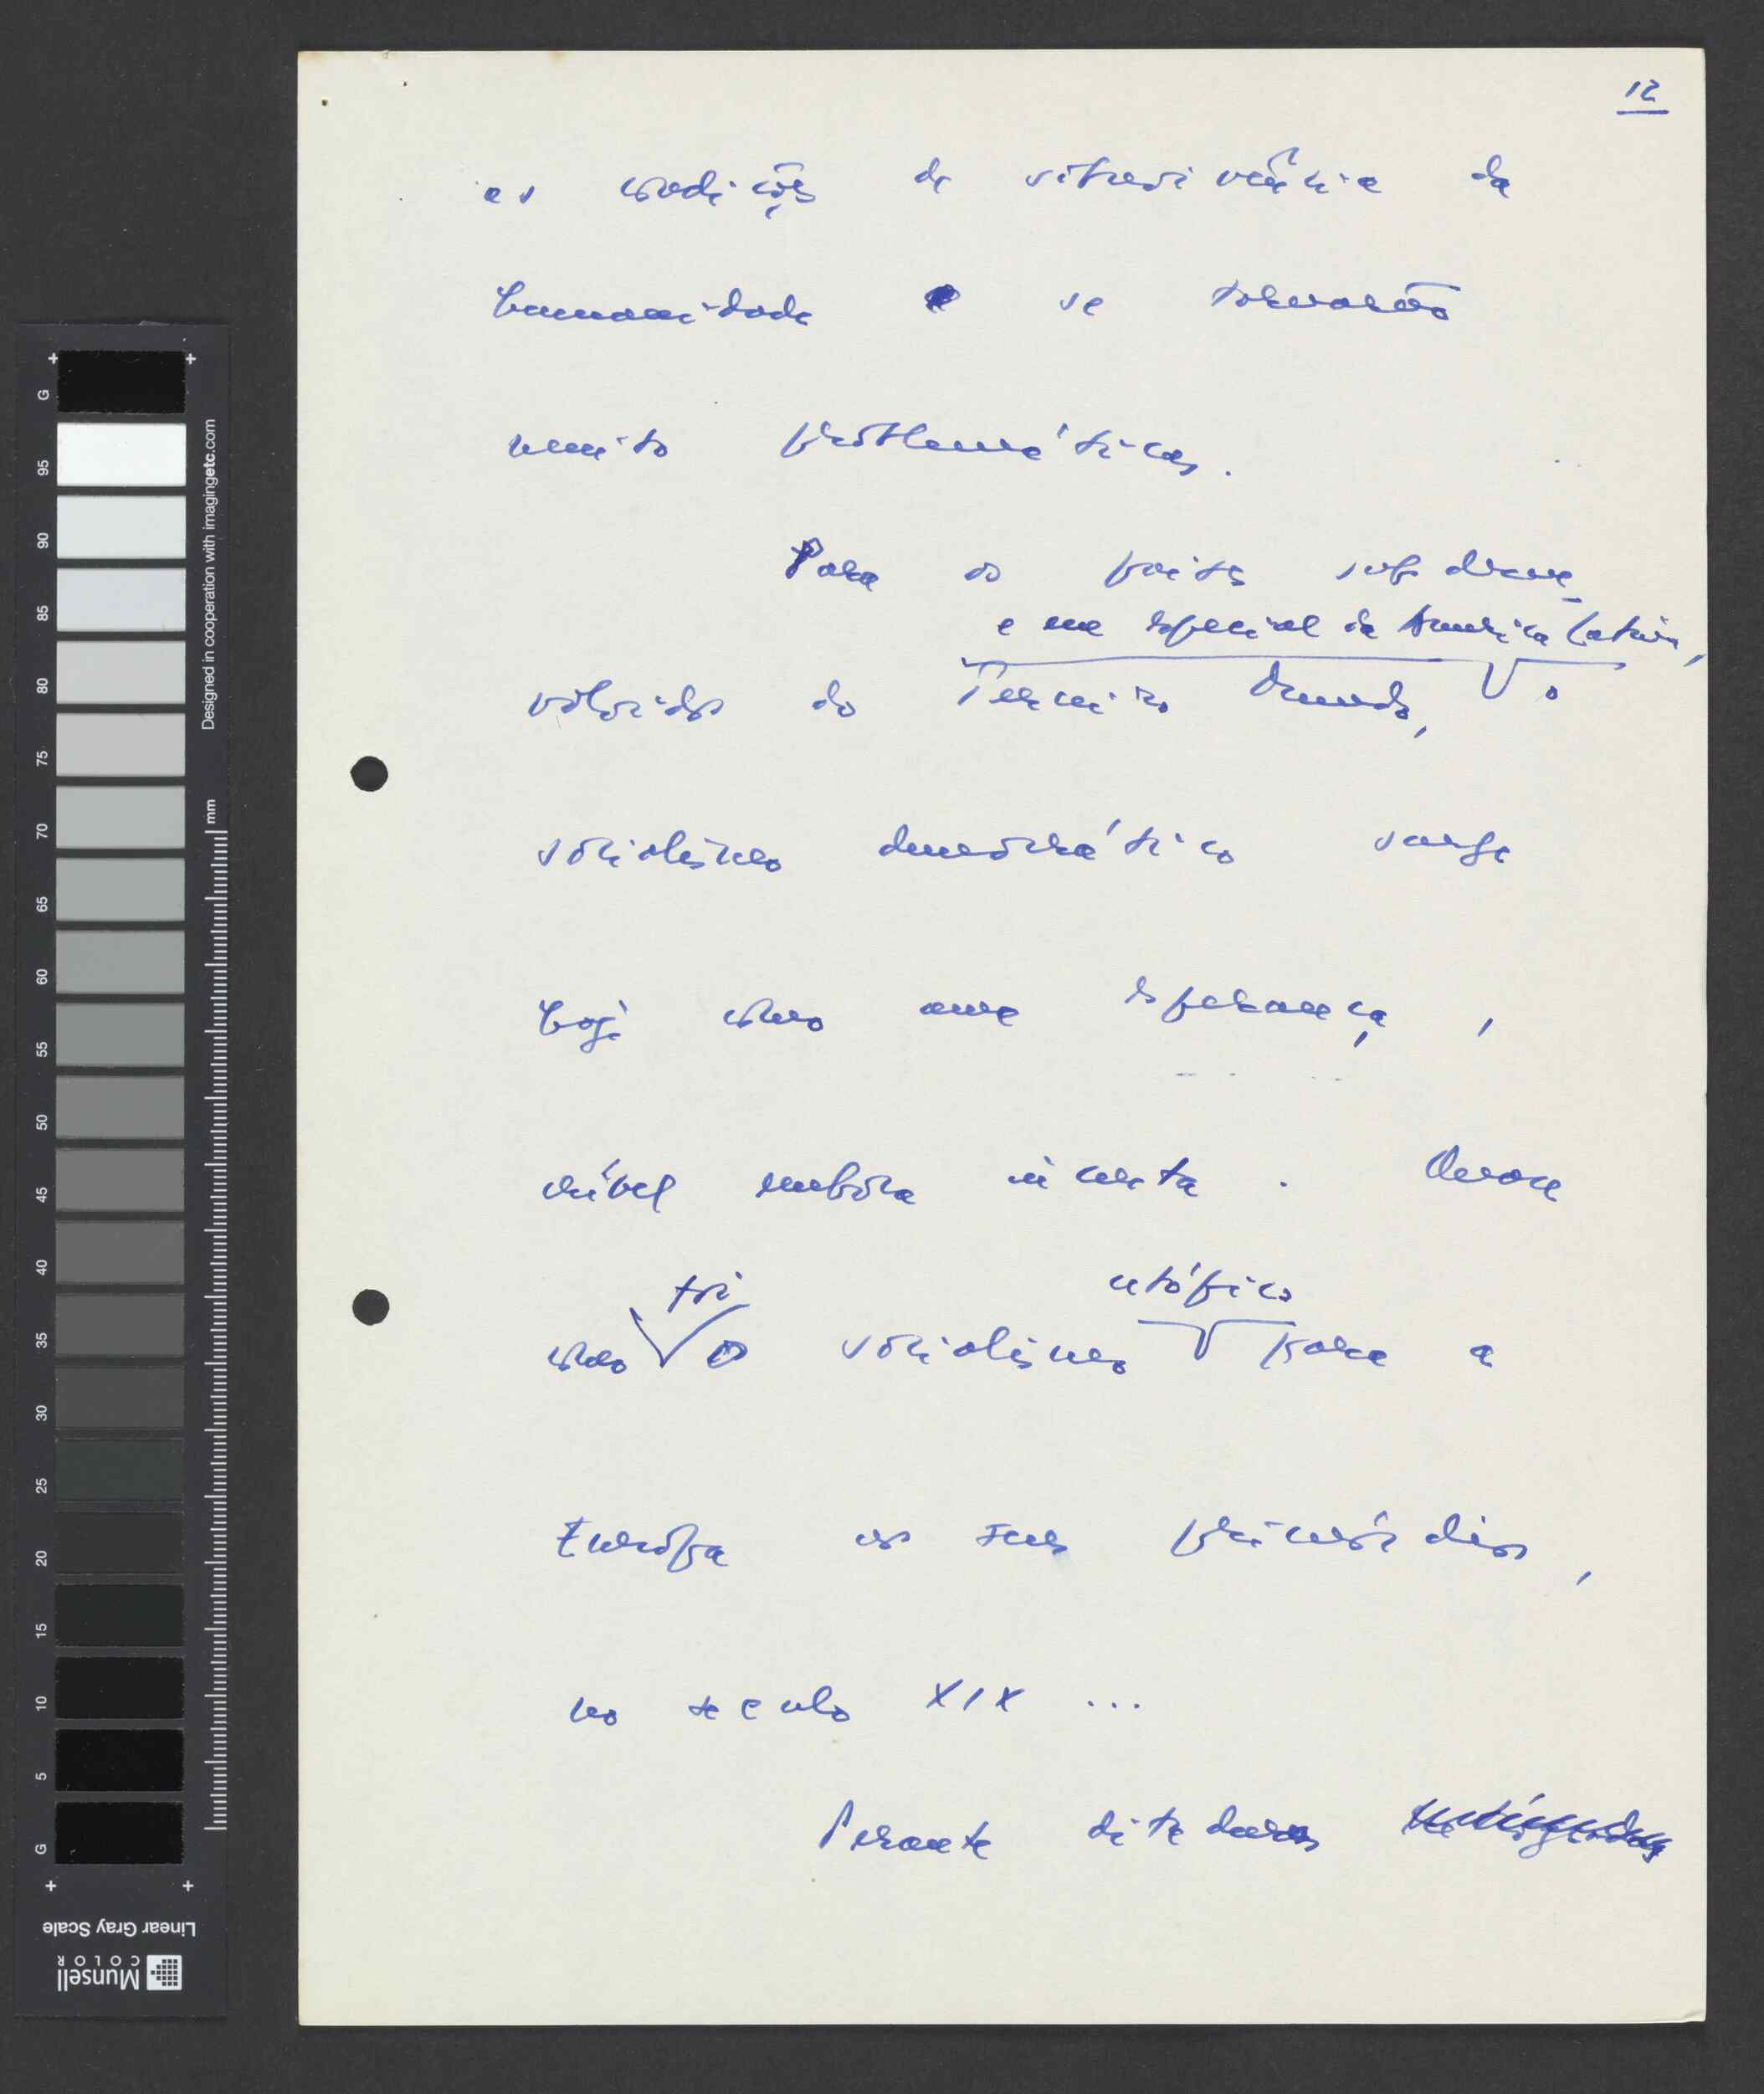 12
as condições de sobrevivência da
humanidade se tornarão
muito problemáticas.
Para os países subdesen-
e em especial da America Latina,
volvidos do Terceiro Mundo, o
socialismo democrático surge
hoje como uma esperança,
embora incerta.
foi utópico
como o socialismo para a
Europa nos seus primórdios,
no seculo XIX ...
Perante ditaduras
G
95
90
85
80
75
70
65
60
55
50
45
40
35
30
25
20
15
10
5
G
Designed in cooperation with imagingetc.com
mm
Linear Gray Scale
Munsell
COLOR